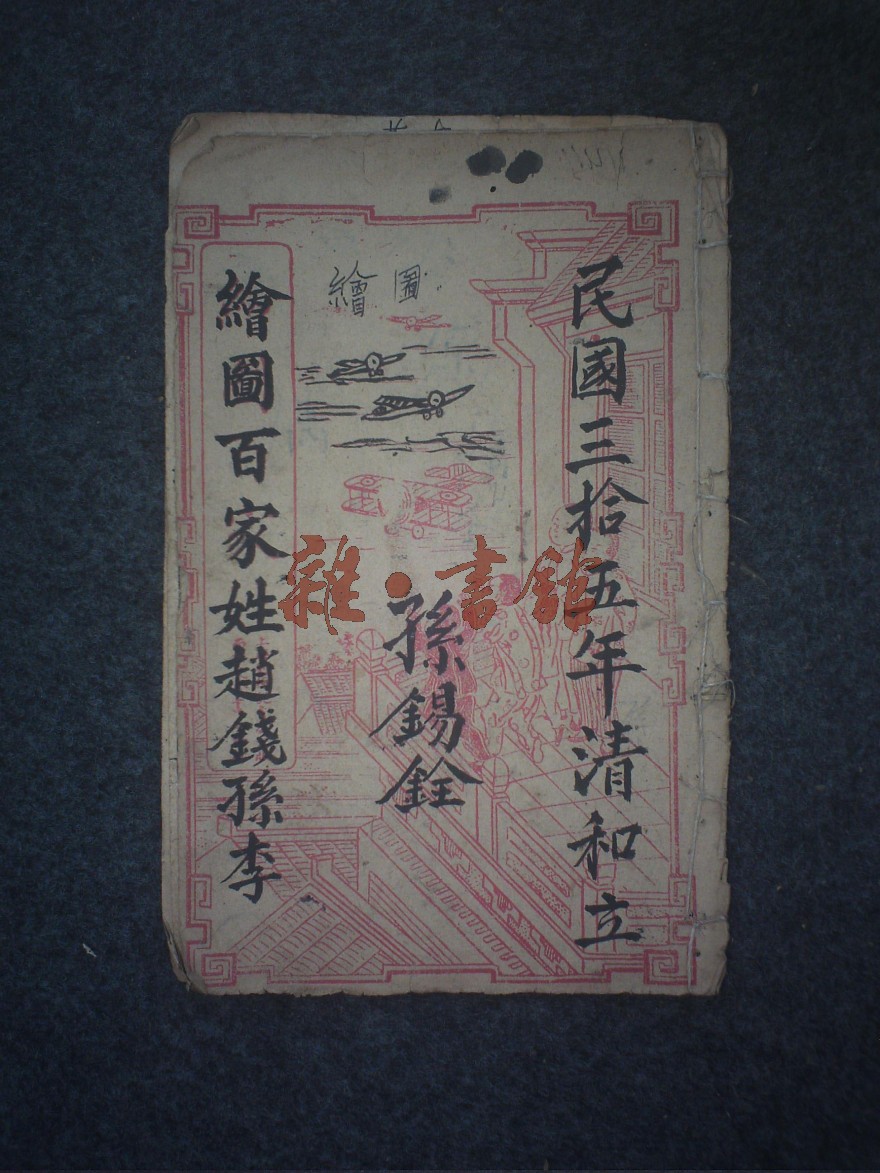 民國三拾五年清和立
繪圖
孫錫銓
繪圖百家姓趙錢孫李
雜·書館